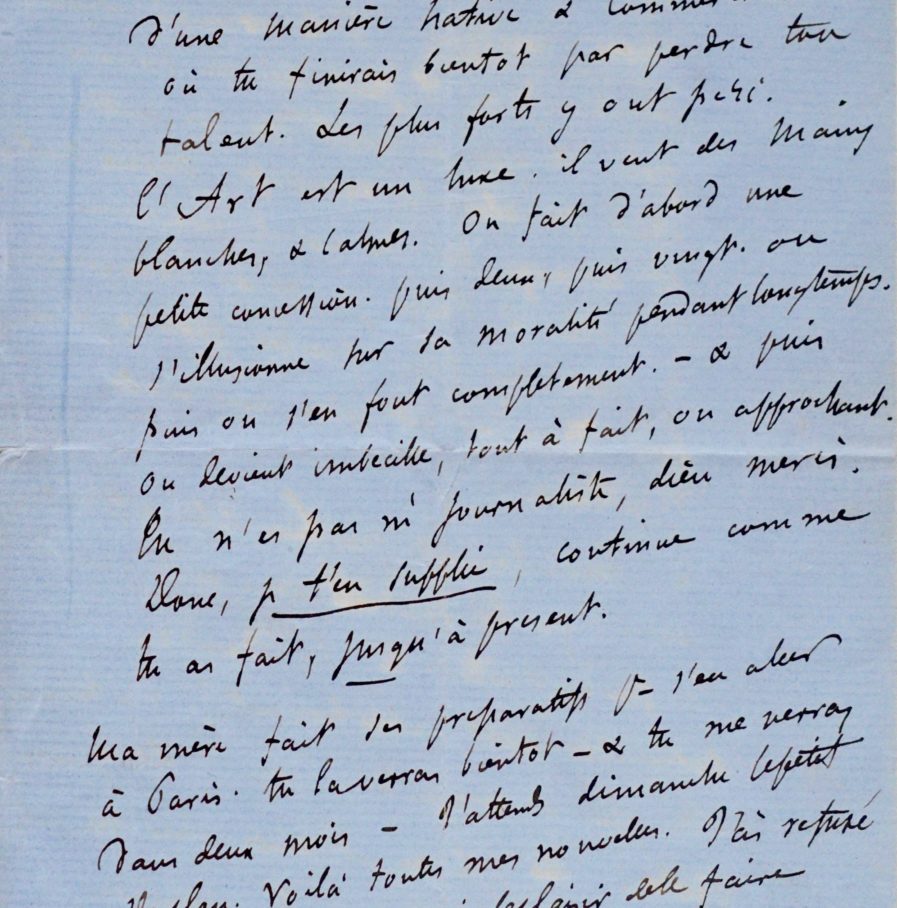 d'une manière hative & commer
où tu finirais bientot par perdre ton
talent. Les plus forts y ont péri.
L'Art est un luxe. il veut des mains
blanches, & calmes. On fait d'abord une
petite concession. puis deux, puis vingt. on
s'illusionne sur sa moralité pendant longtemps.
puis on s'en fout complètement. – & puis
on devient imbécille, tout à fait, ou approchant.
Tu n'es pas né journaliste, dieu merci.
Donc, je t'en supplie, continue comme
tu as fait, jusqu'à présent.
Ma mère fait ses préparatifs pr s'en aller
à Paris. tu la verras bientot – & tu me verras
dans deux mois – J'attends dimanche le petit
Voilà toutes mes nouvelles. J'ai refusé
plaisir de le faire